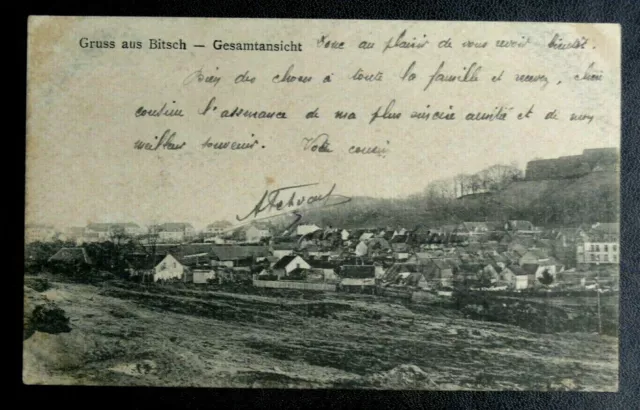 Gruss aus Bitsch — Gesamtansicht
Donc au plaisir de vous revoir bientôt.
Bien des choses à toute la famille et recevez, chère
cousine l'assurance de ma plus sincère amitié et de mes
meilleurs souvenirs. Votre cousin